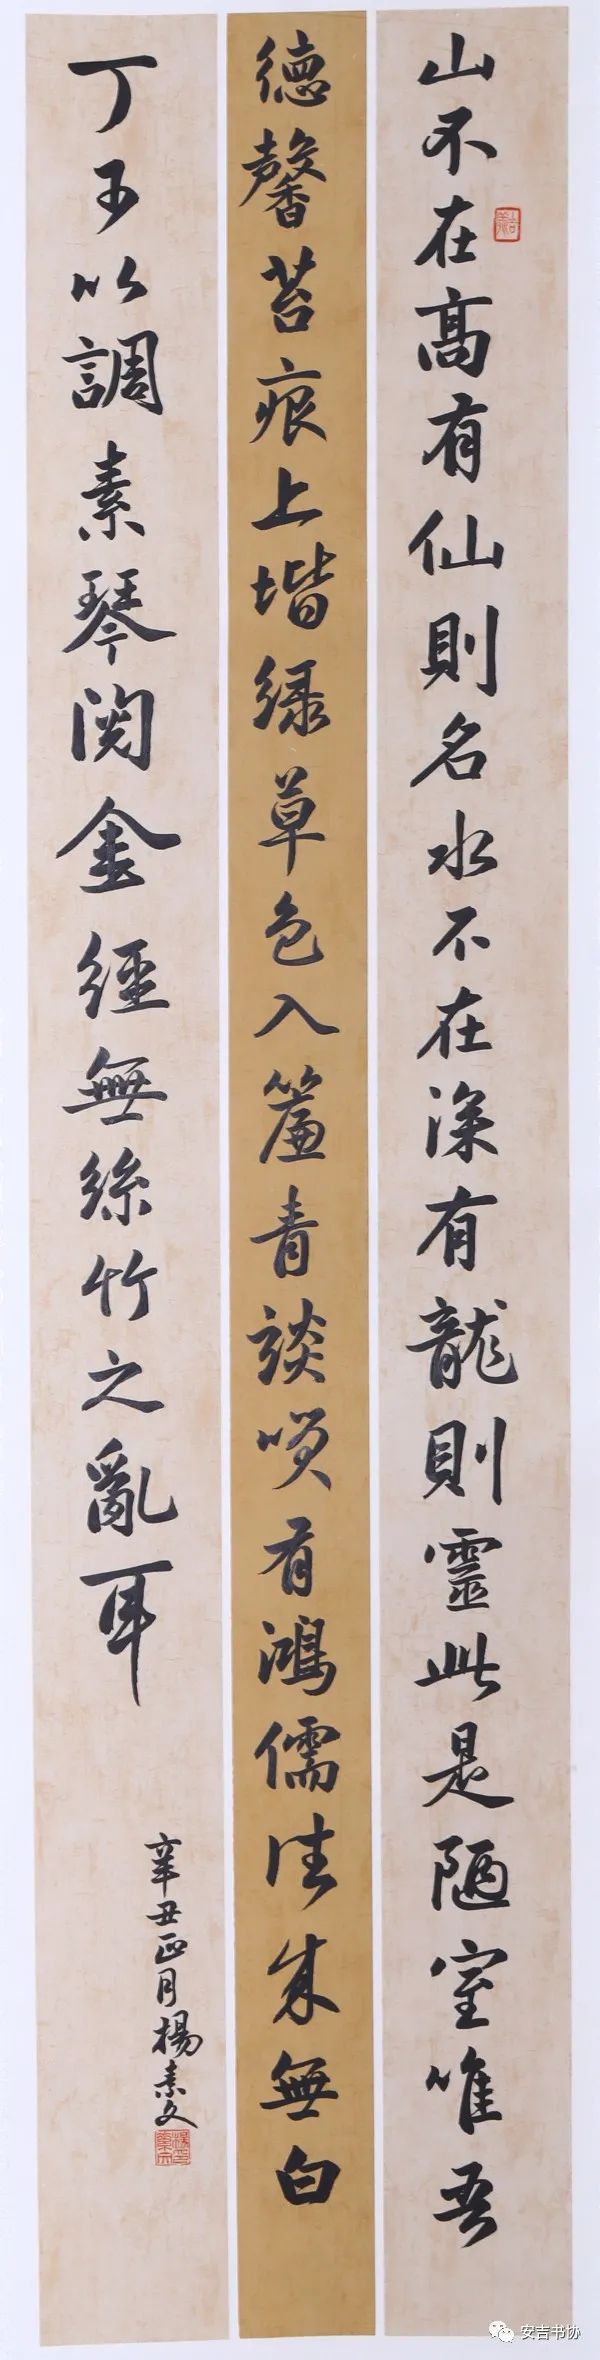 山不在高有仙則名水不在深有龍則靈此是陋室唯吾
德馨苔痕上堦緑草色入簾青談咲有鴻儒往来無白
丁可以調素琴閱金經無絲竹之亂耳
辛丑正月楊素文
安吉书协